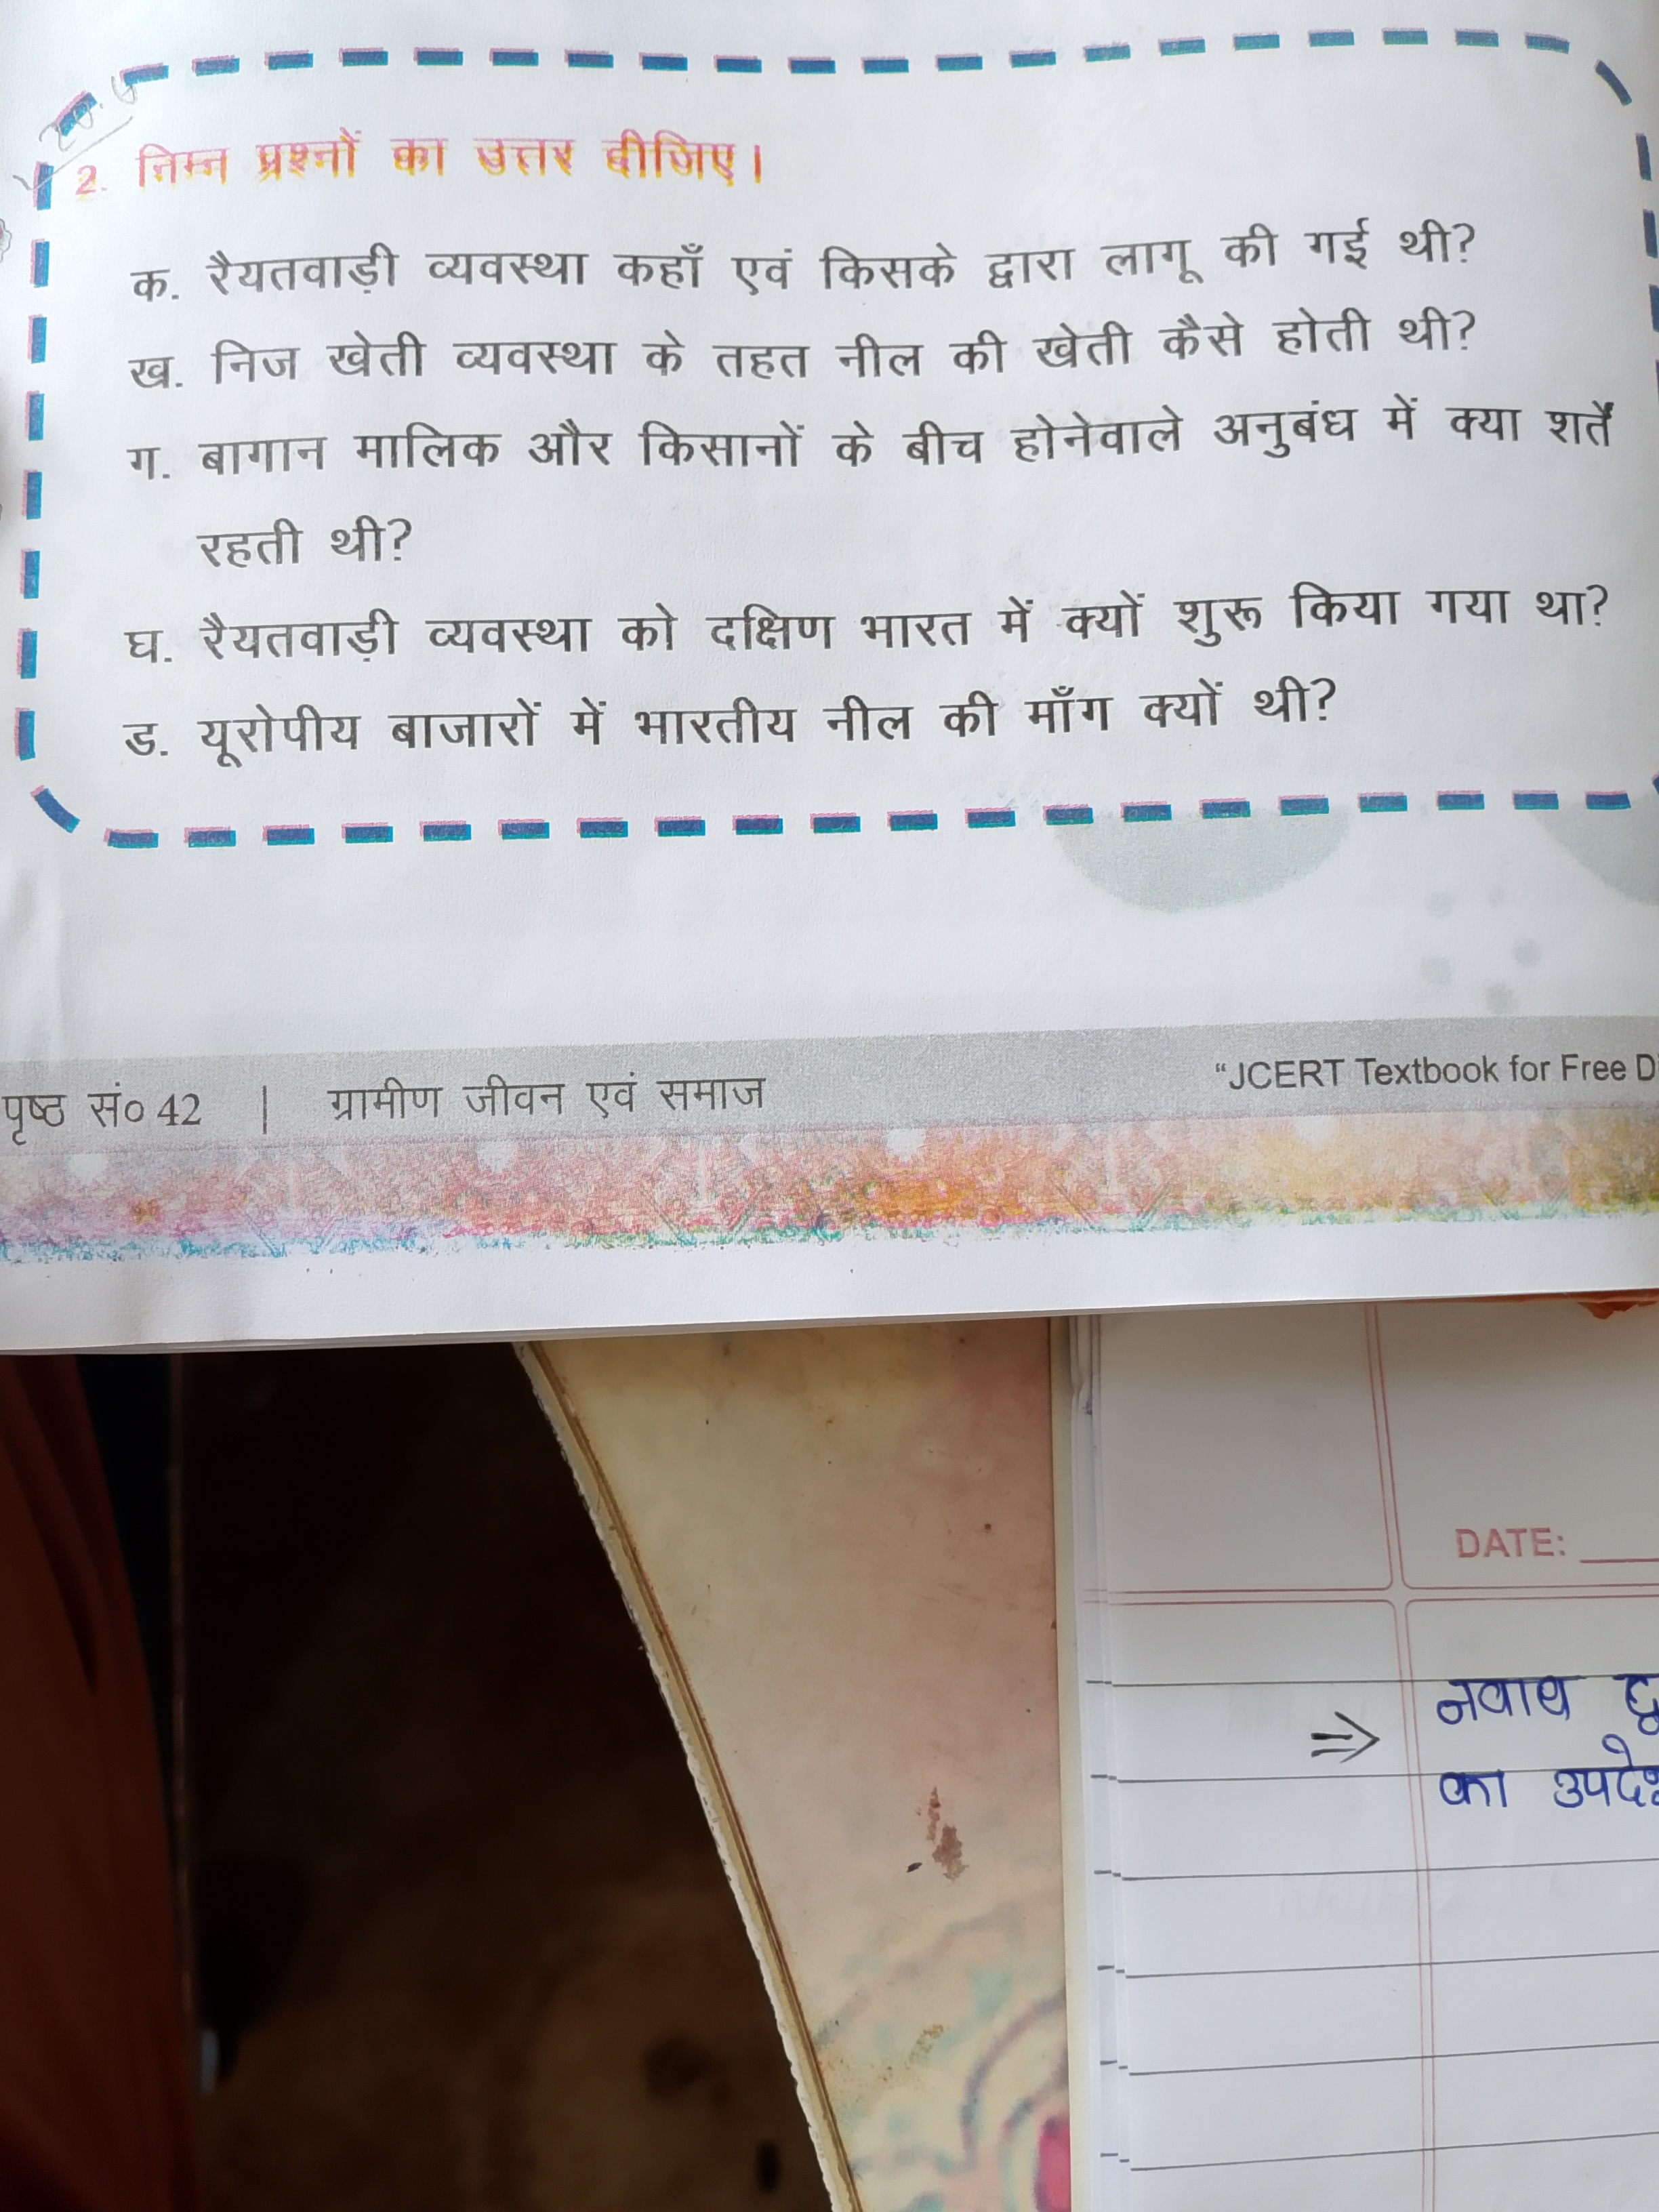 2. निम्न प्रश्नों का उत्तर दीजिए।
क. रैयतवाड़ी व्यवस्था कहाँ एवं किसके द्वारा लागू की गई थी?
ख. निज खेती व्यवस्था के तहत नील की खेती कैसे होती थी?
ग. बागान मालिक और किसानों के बीच होनेवाले अनुबंध में क्या शर्तें
रहती थी?
घ. रैयतवाड़ी व्यवस्था को दक्षिण भारत में क्यों शुरू किया गया था?
ड. यूरोपीय बाजारों में भारतीय नील की माँग क्यों थी?
पृष्ठ सं० 42 | ग्रामीण जीवन एवं समाज
“JCERT Textbook for Free
DATE:
⇒ नवाब
का